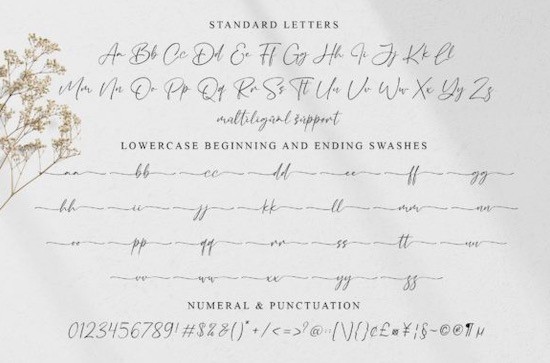 STANDARD LETTERS
Aa Bb Cc Dd Ee Ff Gg Hh Ii Jj Kk Ll
Mm Nn Oo Pp Qq Rr Ss Tt Uu Vv Ww Xx Yy Zz
multiligual support
LOWERCASE BEGINNING AND ENDING SWASHES
aa bb cc dd ee ff gg
hh ii jj kk ll mm nn
oo pp qq rr ss tt uu
vv ww xx yy zz
NUMERAL & PUNCTUATION
0123456789! #$%&()*+/<=>?@:;[\]{}¢£¤¥¦§~©®¶µ